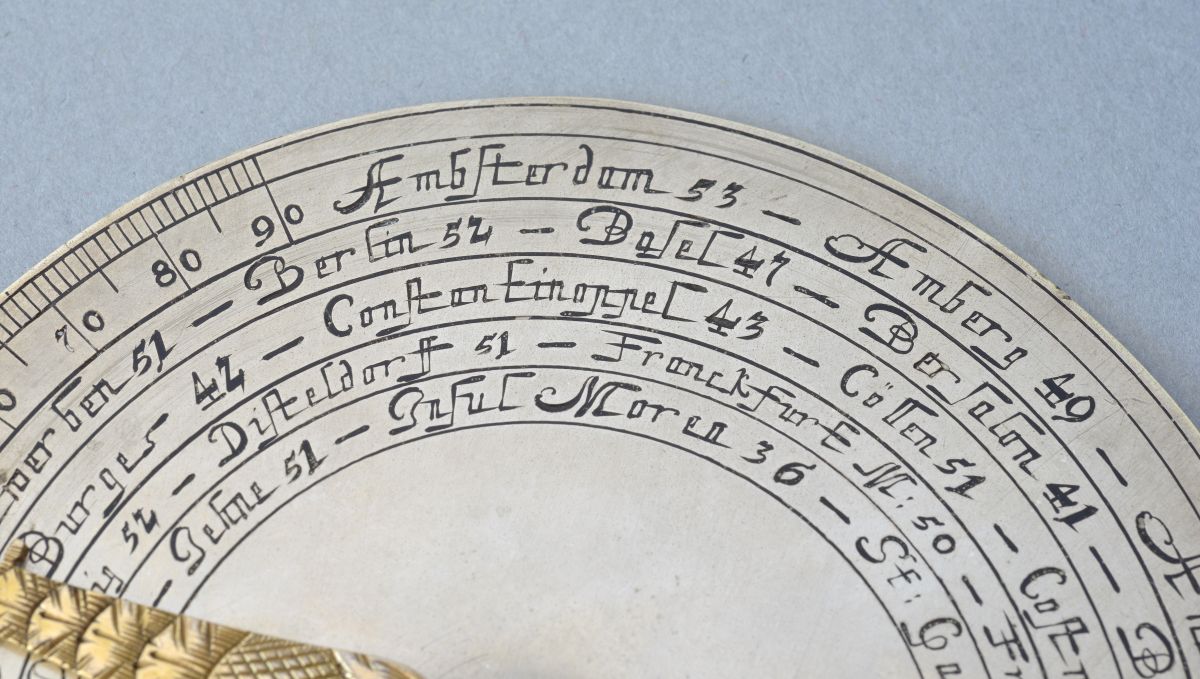 70 80 90
Ambsterdam 53 – Amberg 49 –
51 – Berlin 52 – Basel 47 – Barselon 41 –
Burges 42 – Constantinoppel 43 – Cölen 51 – Cost
52 – Disteldorff 51 – Franckfurt M: 50 – Fr
Gesne 51 – Insul Moren 36 – St: Ga